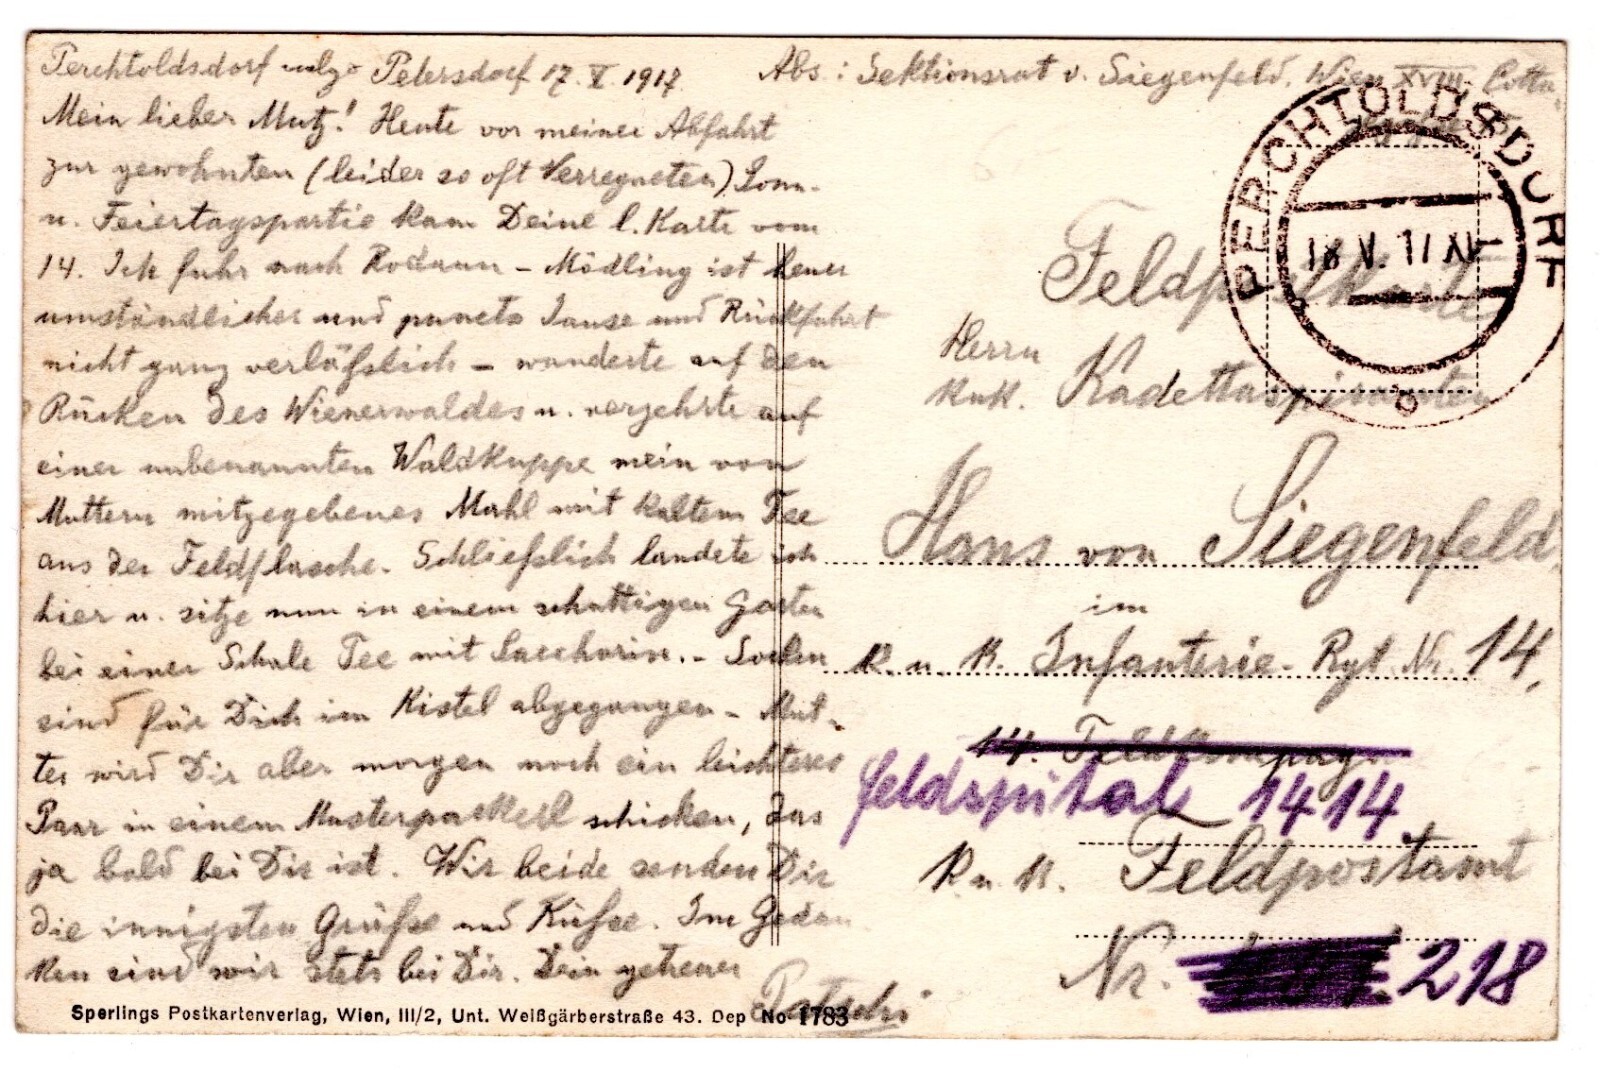 Perchtoldsdorf vulgo Petersdorf 17. V. 1917.
Mein lieber Mutz! Heute vor meiner Abfahrt
zur gewohnten (leider so oft verregneten) Sonn-
u. Feiertagspartie kam Deine l. Karte vom
14. Ich fuhr nach Rodaun – Mödling ist heuer
umständlicher und puncto Jause und Rückfahrt
nicht ganz verläßlich – wanderte auf den
Rücken des Wienerwaldes u. verzehrte auf
einer unbenannten Waldkuppe mein von
Muttern mitgegebenes Mahl mit kaltem Tee
aus der Feldflasche. Schließlich landete ich
hier u. sitze nun in einem schattigen Garten
bei einer Schale Tee mit Saccharin. – Socken
sind für Dich im Kistel abgegangen – Mut-
ter wird Dir aber morgen noch ein leichteres
Paar in einem Musterpackerl schicken, das
ja bald bei Dir ist. Wir beide senden Dir
die innigsten Grüße und Küsse. Im Gedan-
ken sind wir stets bei Dir. Dein getreuer
Patschi
Sperlings Postkartenverlag, Wien, III/2, Unt. Weißgärberstraße 43. Dep No 1783
Abs.: Sektionsrat v. Siegenfeld, Wien XVIII. Cotta-
PERCHTOLDSDORF
18 V. 17
Feldpostkarte
Herrn
k.u.k. Kadettaspiranten
Hans von Siegenfeld
im
k. u. k. Infanterie-Rgt. Nr. 14,
14. Feldkompagnie
feldspital 1414
k. u. k. Feldpostamt
Nr. 218